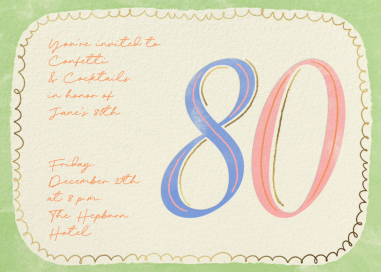 You're invited to
Confetti
& Cocktails
in honor of
Jane's 80th
80
Friday,
December
at 8 p.m.
The Hepburn
Hotel